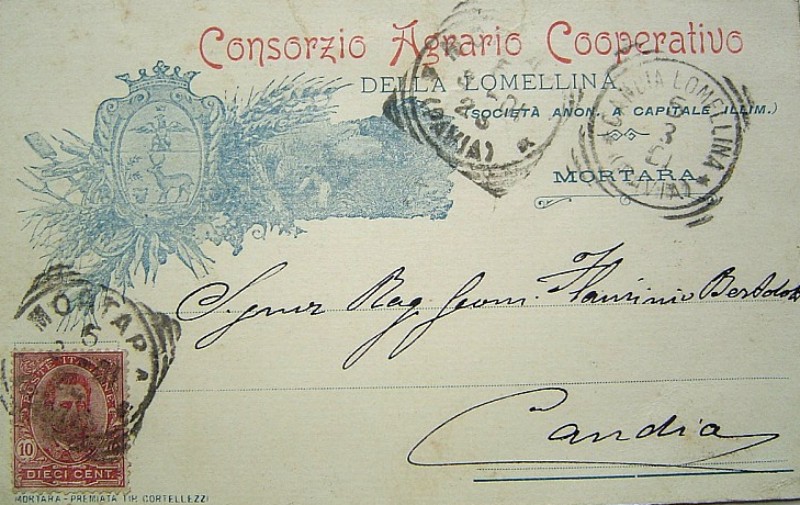 Consorzio Agrario Cooperativo
DELLA LOMELLINA
(SOCIETÀ ANON. A CAPITALE ILLIM.)
MORTARA
MORTARA
(PAVIA)
CANDIA LOMELLINA
(PAVIA)
Signor Rag. Geom. Flaminio Bertoldi
Candia
MORTARA
POSTE ITALIANE
10
DIECI CENT.
MORTARA - PREMIATA TIP. CORTELLEZZI